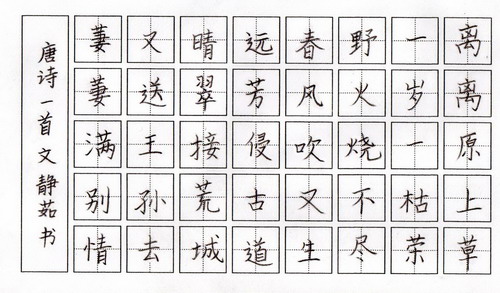 离离原上草
一岁一枯荣
野火烧不尽
春风吹又生
远芳侵古道
晴翠接荒城
又送王孙去
萋萋满别情
唐诗一首文静茹书